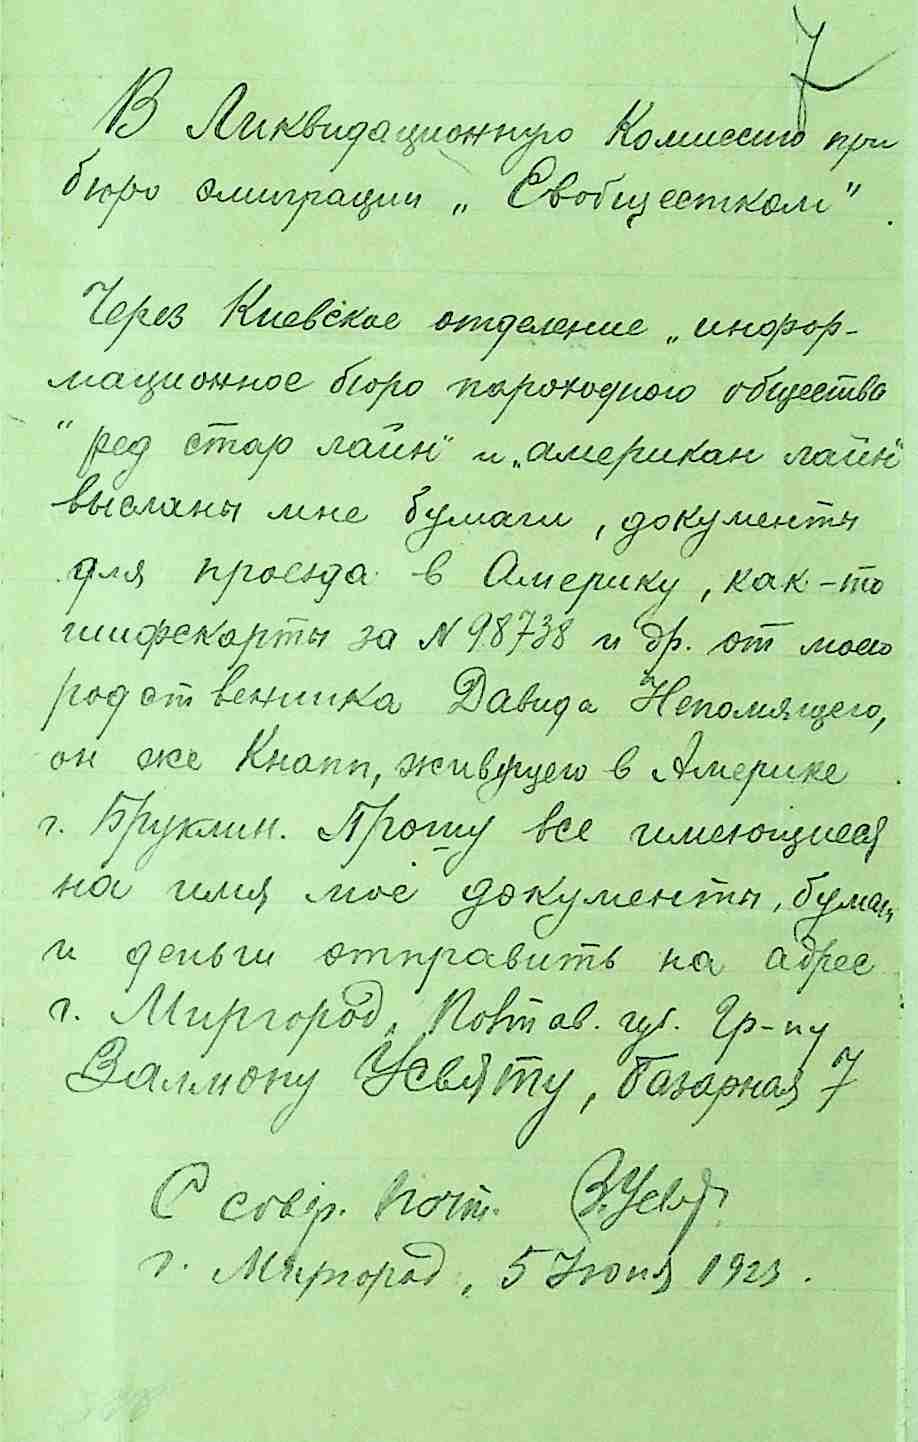 7
В Ликвидационную Комиссию при
бюро эмиграции „Евобщестком"
Через Киевское отделение „инфор-
мационное бюро пароходного общества
"ред стар лайн" и „американ лайн"
высланы мне бумаги, документы
для проезда в Америку, как-то
шифскарты за N 98738 и др. от моего
родственника Давида Непомящего,
он же Кнапп, живущего в Америке
г. Бруклин. Прошу все имеющиеся
на имя моё документы, бумаги
и деньги отправить на адрес
г. Миргород, Полтав. губ. Гр-ну
Залмону Усвяту, базарная 7
С совер. почт. З. Усвят
г. Миргород, 5 Июня 1923.